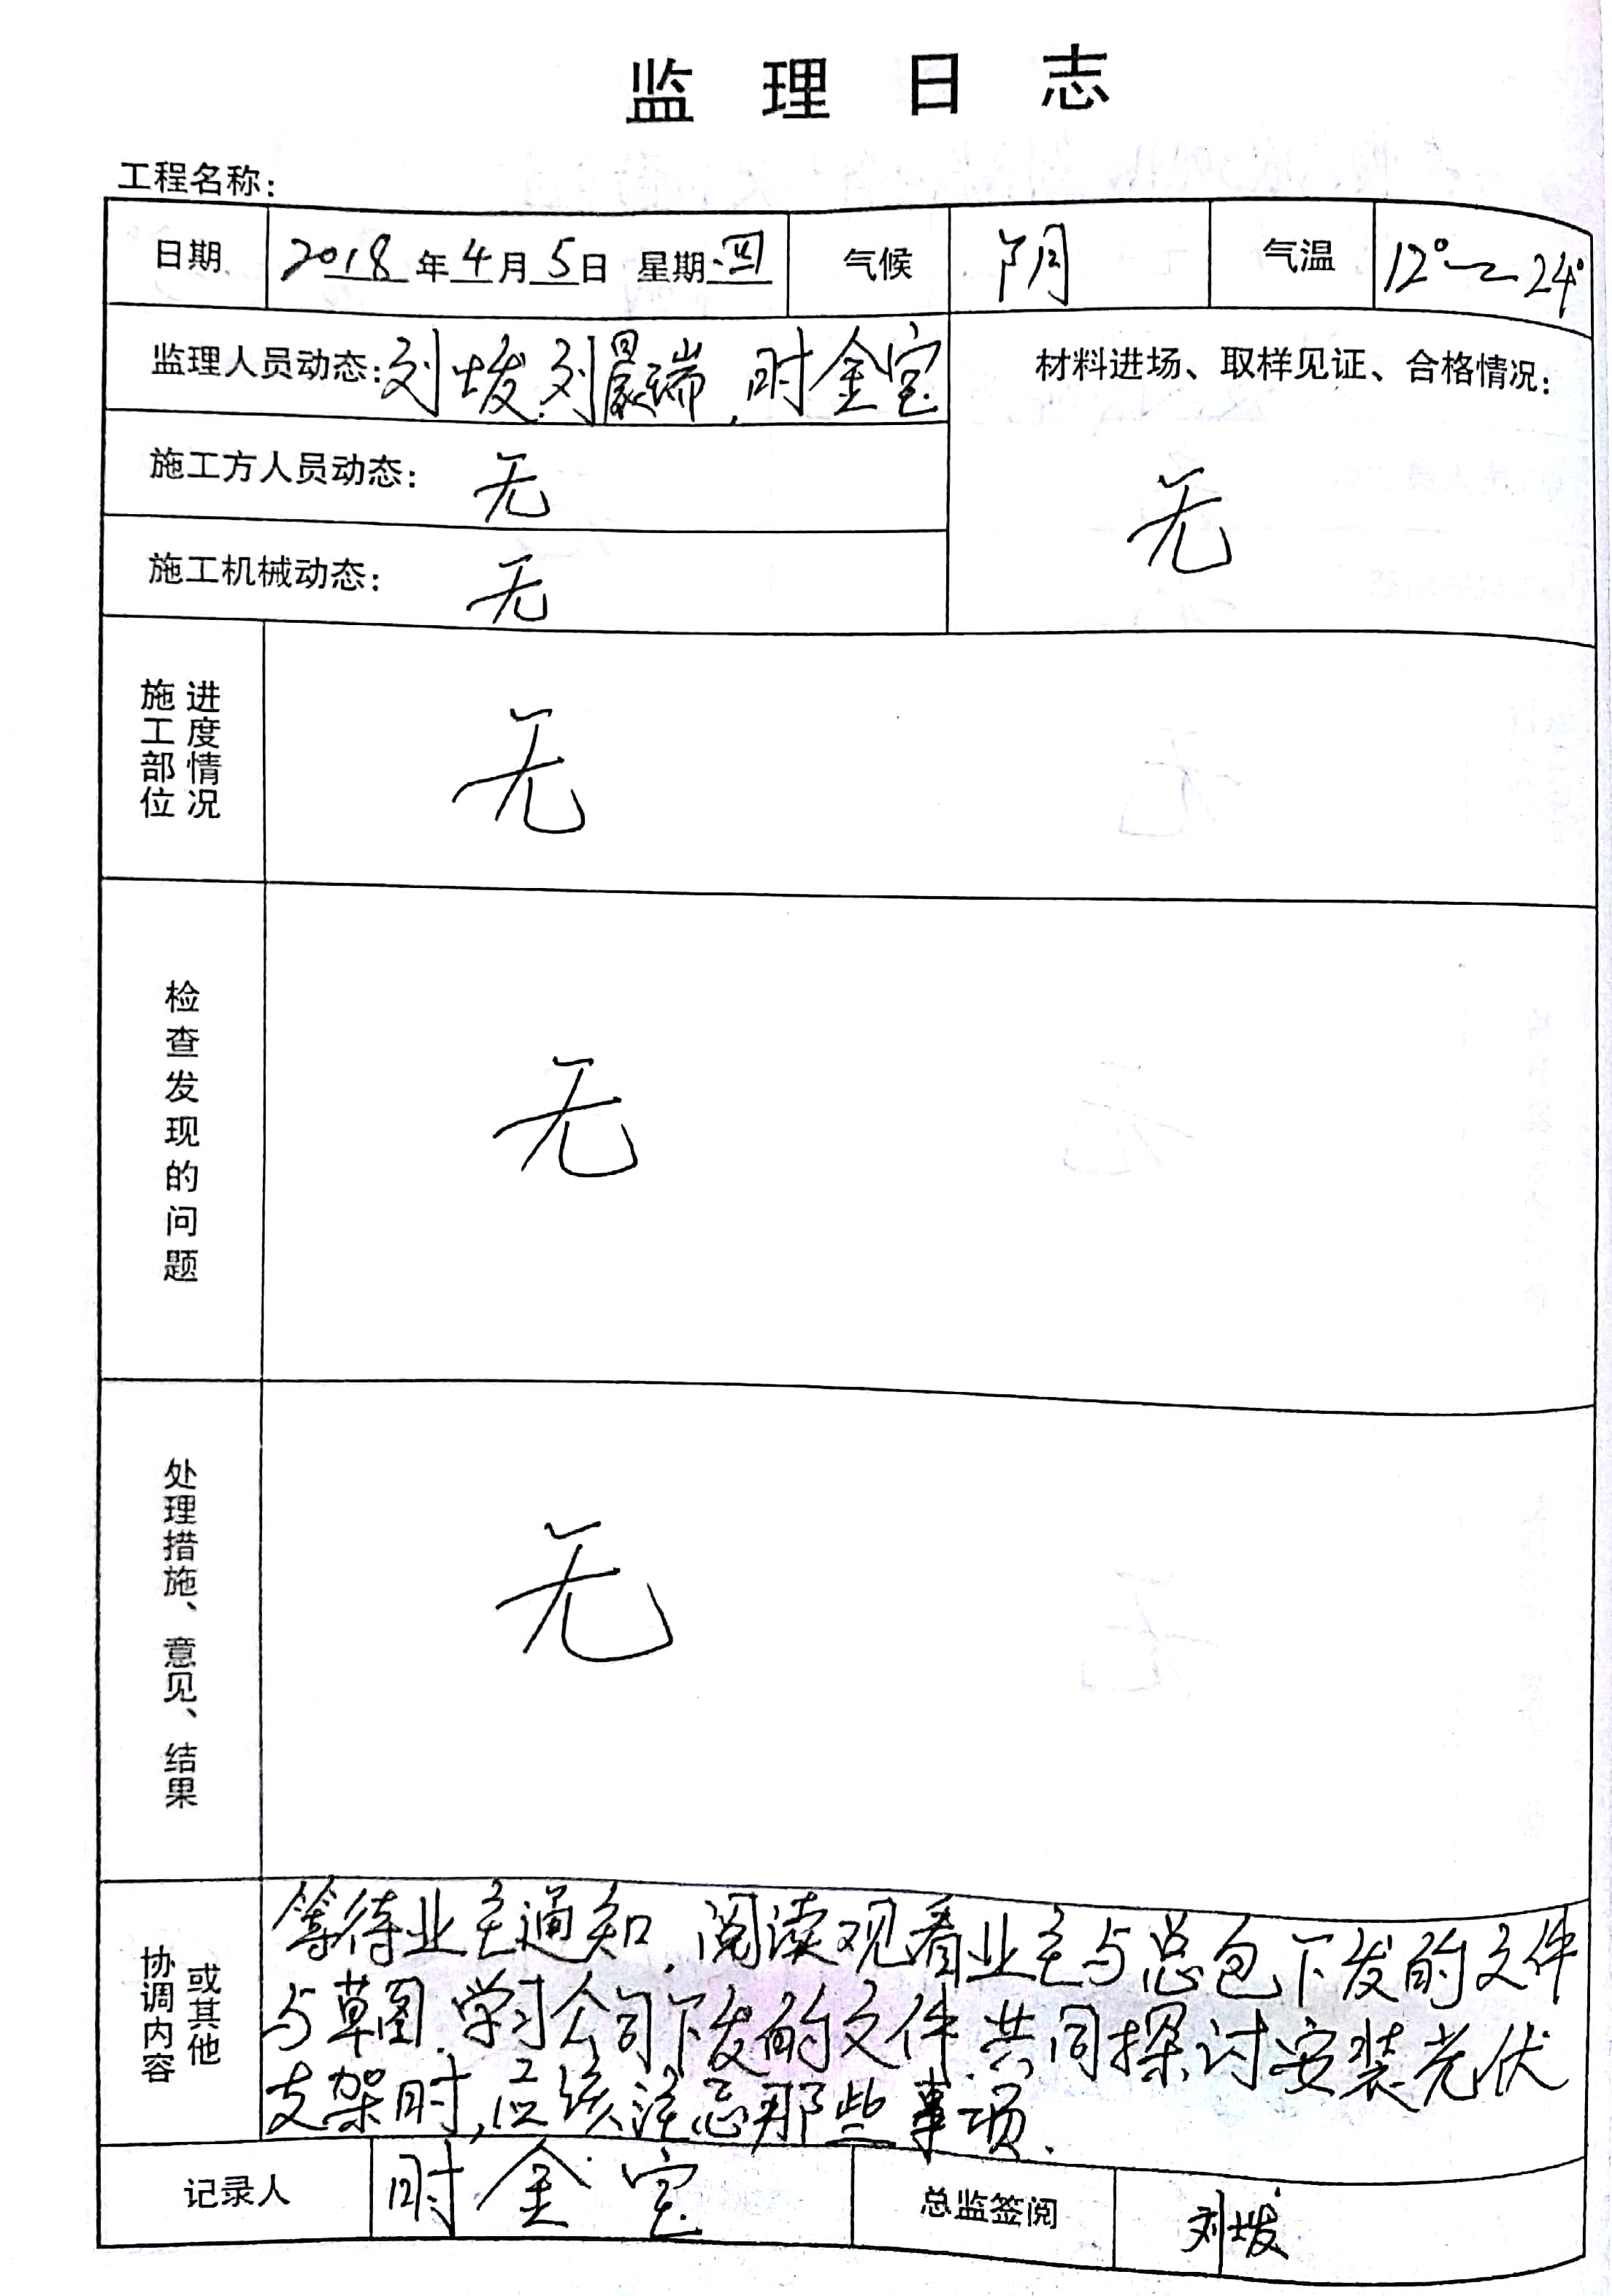 监理日志
工程名称：
日期 2018年4月5日 星期四 气候 阴 气温 12°～24°
监理人员动态：刘 刘晨瑞，时金宝
材料进场、取样见证、合格情况：
无
施工方人员动态：无
施工机械动态：无
施工部位
进度情况
无
检查发现的问题
无
处理措施、意见、结果
无
协调内容
或其他
等待业主通知，阅读观看业主与总包下发的文件
与草图，学习公司下发的文件，共同探讨安装光伏
支架时，应该注意那些事项．
记录人 时金宝 总监签阅 刘